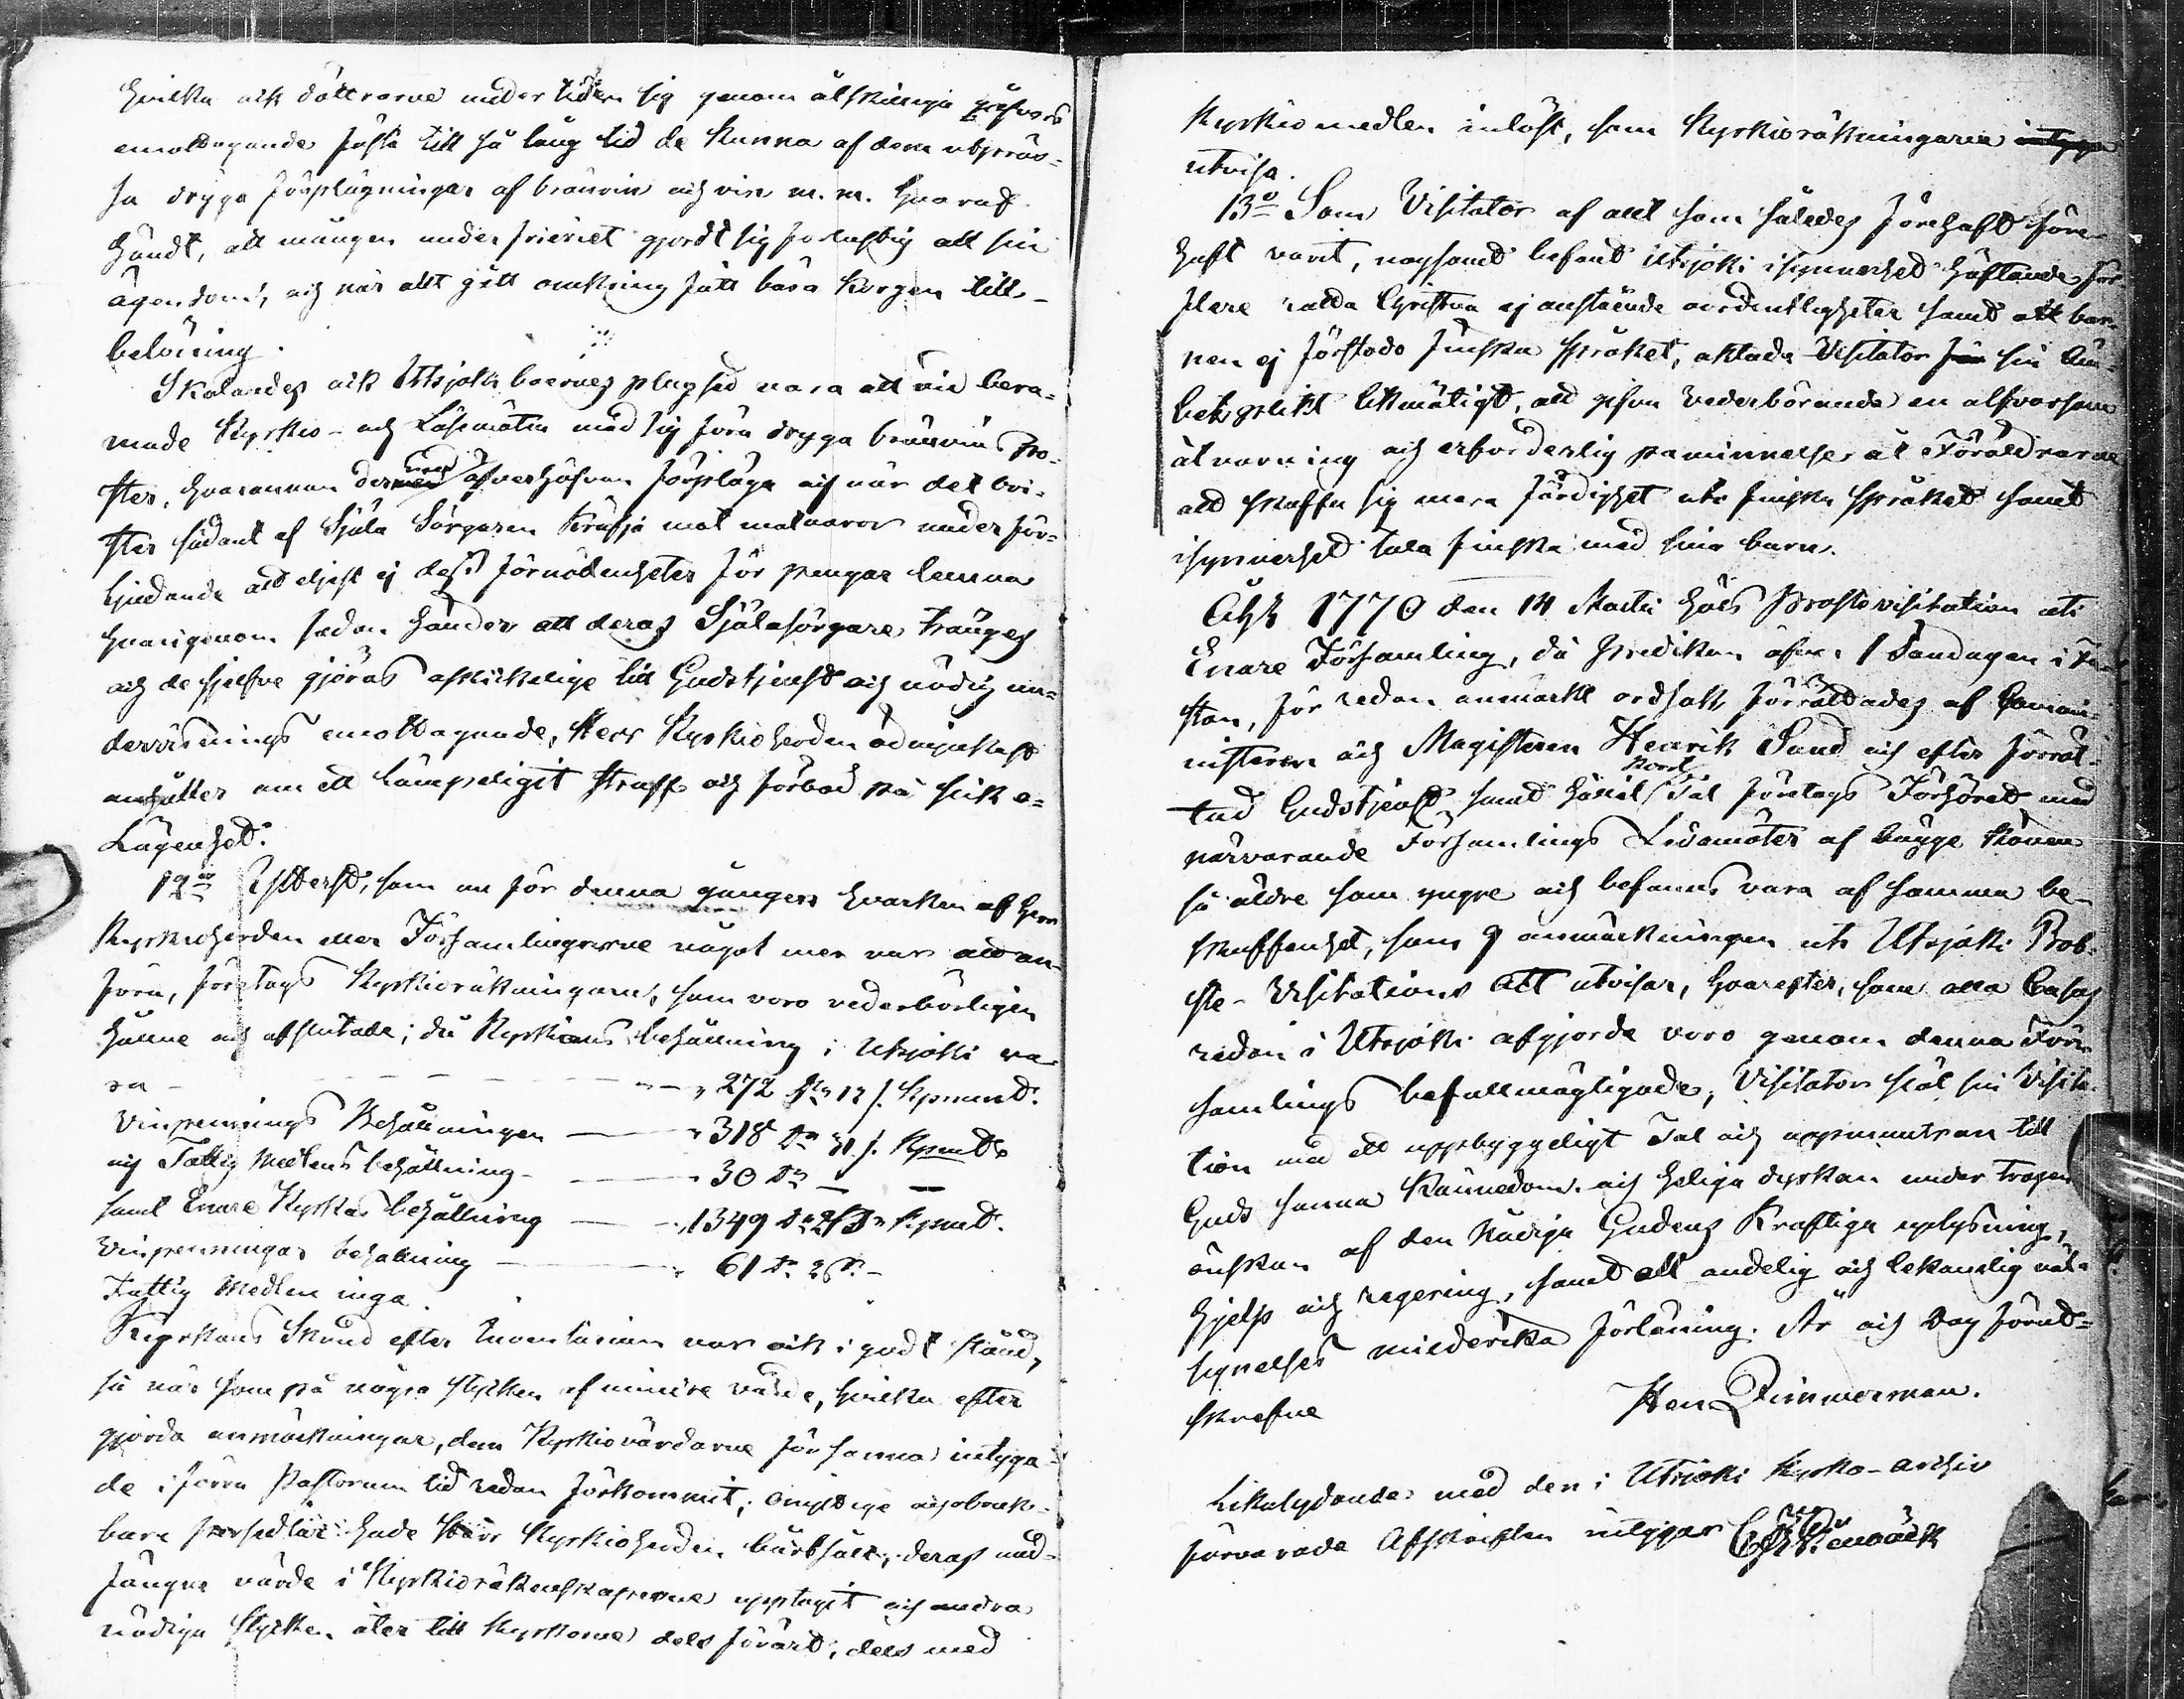 hvilka ock döttrarne under tiden sig genom åtskillige gåfvors
emottagande fästa till så lång tid de kunna af dem utpräs-
sa dryga förplägningar af bränvin och vin m. m. hvaraf
händt, att mången under frieriet gjordt sig förlustig all sin
ägendom, och när allt gått omkring fått bära korgen till
belöning.
Skolandes ock Utsjoki boernes plägsed vara att vid bera-
made Kyrkio- och Läsemöten med sig föra dryga bränvins po-
ster, hvarannan dermed öfverhöfvan förpläga och när det bri-
ster sådant af Själa Sörgaren kräfja mot matvaror under för-
bjudande att eljest ej dess förnödenheter för pengar lemna
hvarigenom sedan händer att deras Själasörgare tränges
och de sjelfve gjöras oskickelige till Gudstjenst och nödig un-
dervisnings emottagande, Herr Kyrkioherden ödmjukast
anhåller om ett lämpeligit straff och förbod på slik o-
Lägenhet.
12:o Ytterst, som nu för denna gången hvarken af Herr
Kyrkioherden eller Församlingarne något mer var att an-
föra, företogs Kyrkioräkningarne, som voro vederbörligen
hållne och afslutade; då Kyrkians behållning i Utsjoki va-
ra - - - - - - " 272 D:r 12 s. Kpmnt.
Vinpennings Behållningen — " 318 D:r 31 s. Kpmnt
och Fattig Medlens behållning — " 30 D:r — —
samt Enare Kyrkas behållning — " 1349 D:r Kpmt.
Vinpenningas behållning — " 61 D:r
Fattig Medlen inga.
Kyrkans Skrud efter Inventarium var ock i godt stånd,
så när som på några stycken af mindre värde, hvilka efter
gjorda anmärkningar, dem Kyrkiovärdarne för sanna intyga-
de i förra Pastorum tid redan förkommit; onyttige och obruk-
bara persedlar hade Herr Kyrkioherden bårtsålt, deras und-
fångne värde i Kyrkioräkenskaperne upptagit och andra
nödiga stycken åter till Kyrkorne dels förärt; dels med
Kyrkiomedlen inlöst, som Kyrkioräkningarne
utvisa.
13:o Som Visitator af allt som således förehaft före-
haft varit, nogsamt befant Utsjoki isynnerhet häftande för
flere råtta Christna ej anstående oordentligheter samt att bar-
nen ej förstodo finska språket, aktade Visitator sin äm-
betsplikt likmätigt, att gifva Vederbörande en alfvarsam
åtvarning och erforderlig påminnelse åt Föräldrarne
att skaffa sig mera färdighet uti finska språket samt
isynnerhet tala finska med sina barn.
Åhr 1770 den 14 Martii hölls Prostevisitation uti
Enare Församling, då Predikan öfver 1 Söndagen i Fa-
stan, för redan anmärkt ordsak förrättades af Comi-
nistern och Magisteren Henrik Sund och efter förrät-
tad Gudstjenst samt hållit kort Tal företogs Förhöret med
närvarande Församlings Ledamöter af bägge könen
så äldre som yngre och befanns vara af samma be-
skaffenhet, som 9 anmärkningen uti Utsjoki Prob-
ste-Visitations Act utvisar, hvarefter, som alla Casus
redan i Utsjoki afgjorde voro genom denna För-
samlings befullmägtigade, Visitator slöt sin Visita-
tion med ett uppbyggeligt Tal och uppmuntran till
Guds sanna Kännedom och heliga dyrkan under trogen
önskan af den Nådige Gudens Kraftiga uplysning,
hjelp och regering, samt all andelig och lekamlig väl-
signelses mildrika förläning. År och Dag förut-
skrefne
Hen Zimmerman.
Likalydande med den i Utsjoki Kyrko-archiv
förvarade Afskriften intygar